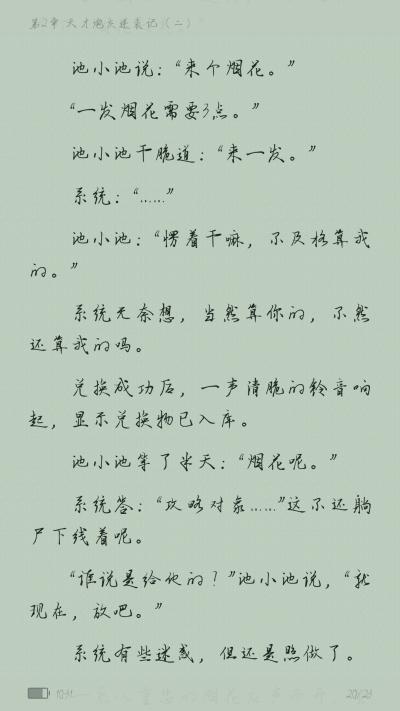 第2章 天才炮灰逆袭记（二）
池小池说：“来个烟花。”
“一发烟花需要3点。”
池小池干脆道：“来一发。”
系统：“……”
池小池：“愣着干嘛，不及格算我
的。”
系统无奈想，当然算你的，不然
还算我的吗。
兑换成功后，一声清脆的铃音响
起，显示兑换物已入库。
池小池等了半天：“烟花呢。”
系统答：“攻略对象……”这不还躺
尸下线着呢。
“谁说是给他的？”池小池说，“就
现在，放吧。”
系统有些迷惑，但还是照做了。
20/23